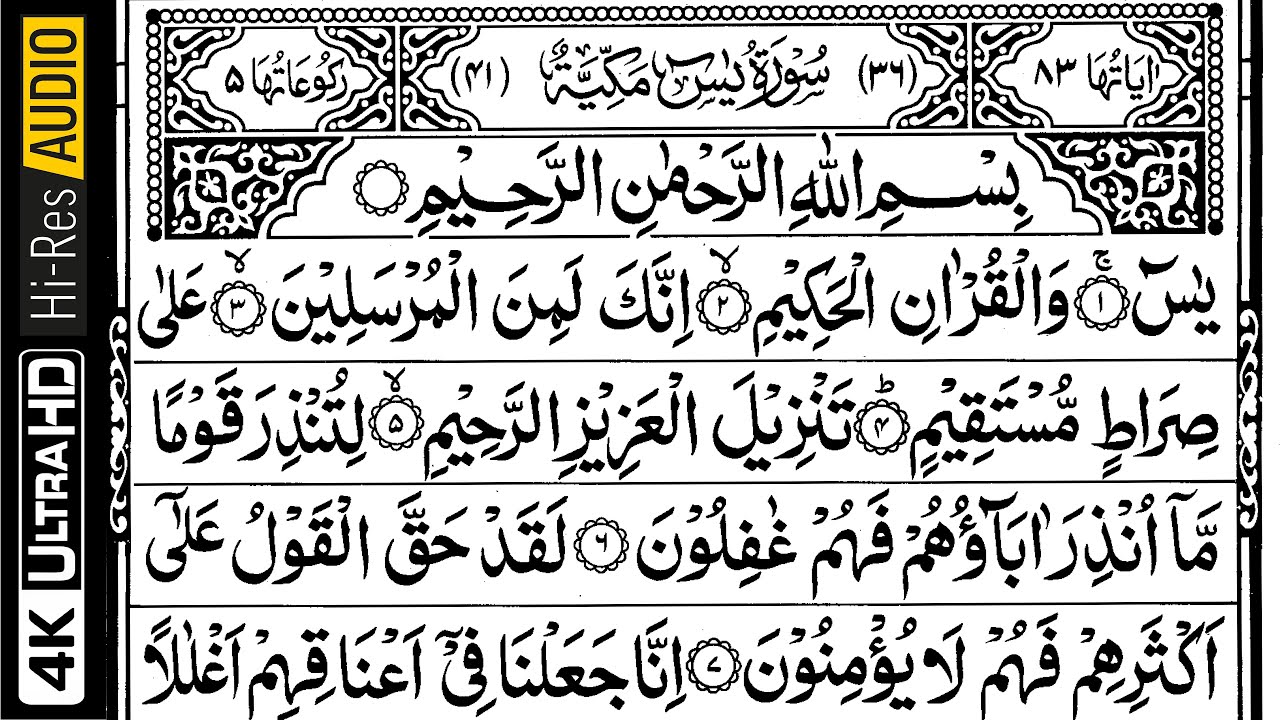 Hi-Res AUDIO
4K ULTRA HD
اٰيَاتُهَا ٨٣ (٣٦) سُوْرَةُ يٰسٓ مَكِّيَّةٌ (٤١) رُكُوْعَاتُهَا ٥
بِسْمِ اللّٰهِ الرَّحْمٰنِ الرَّحِيْمِ
يٰسٓ ۚ ۝١ وَالْقُرْاٰنِ الْحَكِيْمِ ۙ ۝٢ اِنَّكَ لَمِنَ الْمُرْسَلِيْنَ ۙ ۝٣ عَلٰى
صِرَاطٍ مُّسْتَقِيْمٍ ؕ ۝٤ تَنْزِيْلَ الْعَزِيْزِ الرَّحِيْمِ ۙ ۝٥ لِتُنْذِرَ قَوْمًا
مَّاۤ اُنْذِرَ اٰبَآؤُهُمْ فَهُمْ غٰفِلُوْنَ ۝٦ لَقَدْ حَقَّ الْقَوْلُ عَلٰۤى
اَكْثَرِهِمْ فَهُمْ لَا يُؤْمِنُوْنَ ۝٧ اِنَّا جَعَلْنَا فِيْۤ اَعْنَاقِهِمْ اَغْلٰلًا